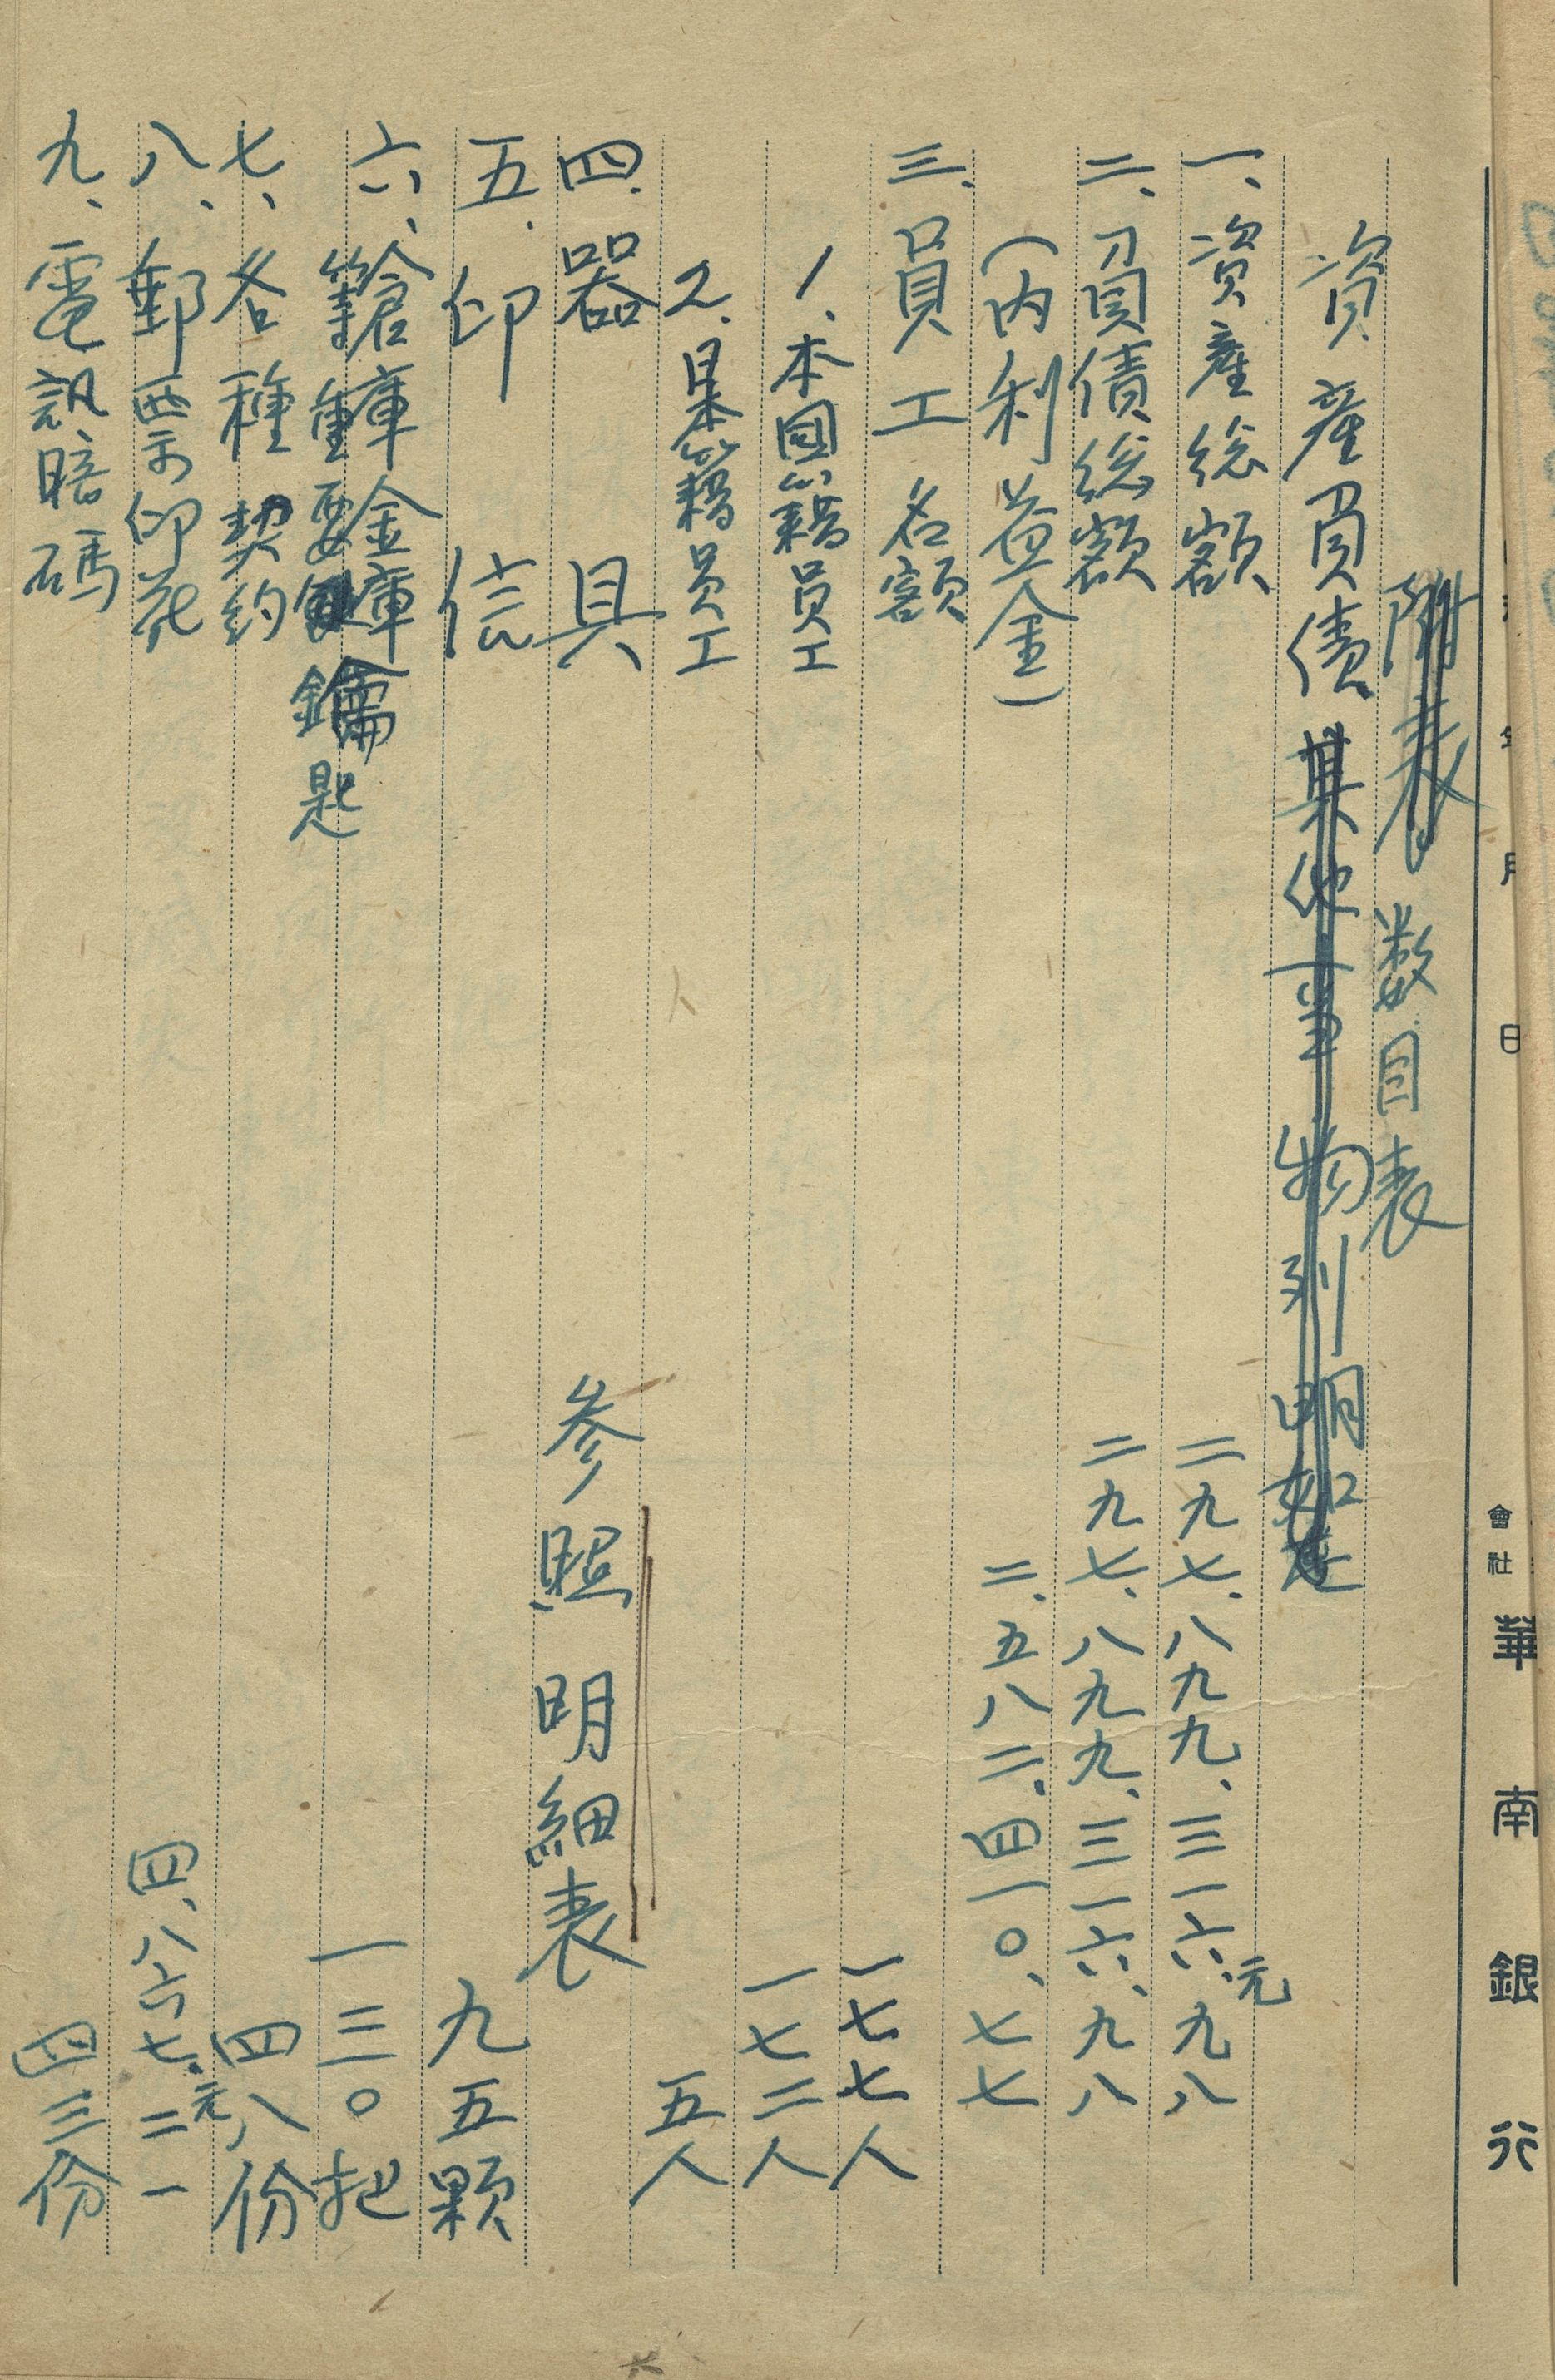 年 月 日
會社 華南銀行
附表 数目表
資產負債其他事物列明如左
一、資產総額 二九七、八九九、三一六、元九八
二、負債総額 二九七、八九九、三一六、九八
(内利益金) 二、五八二、四一〇、七七
三、員工名額 一七七人
1、本國籍员工 一七二人
2、日本籍员工 五人
四、器具 参照明細表
五、印信 九五顆
六、倉庫金庫
籌重要鑰匙 一三〇把
七、各種契約 四八份
八、郵票印花 四、八六七、元二一
九、電訊暗碼 四三份